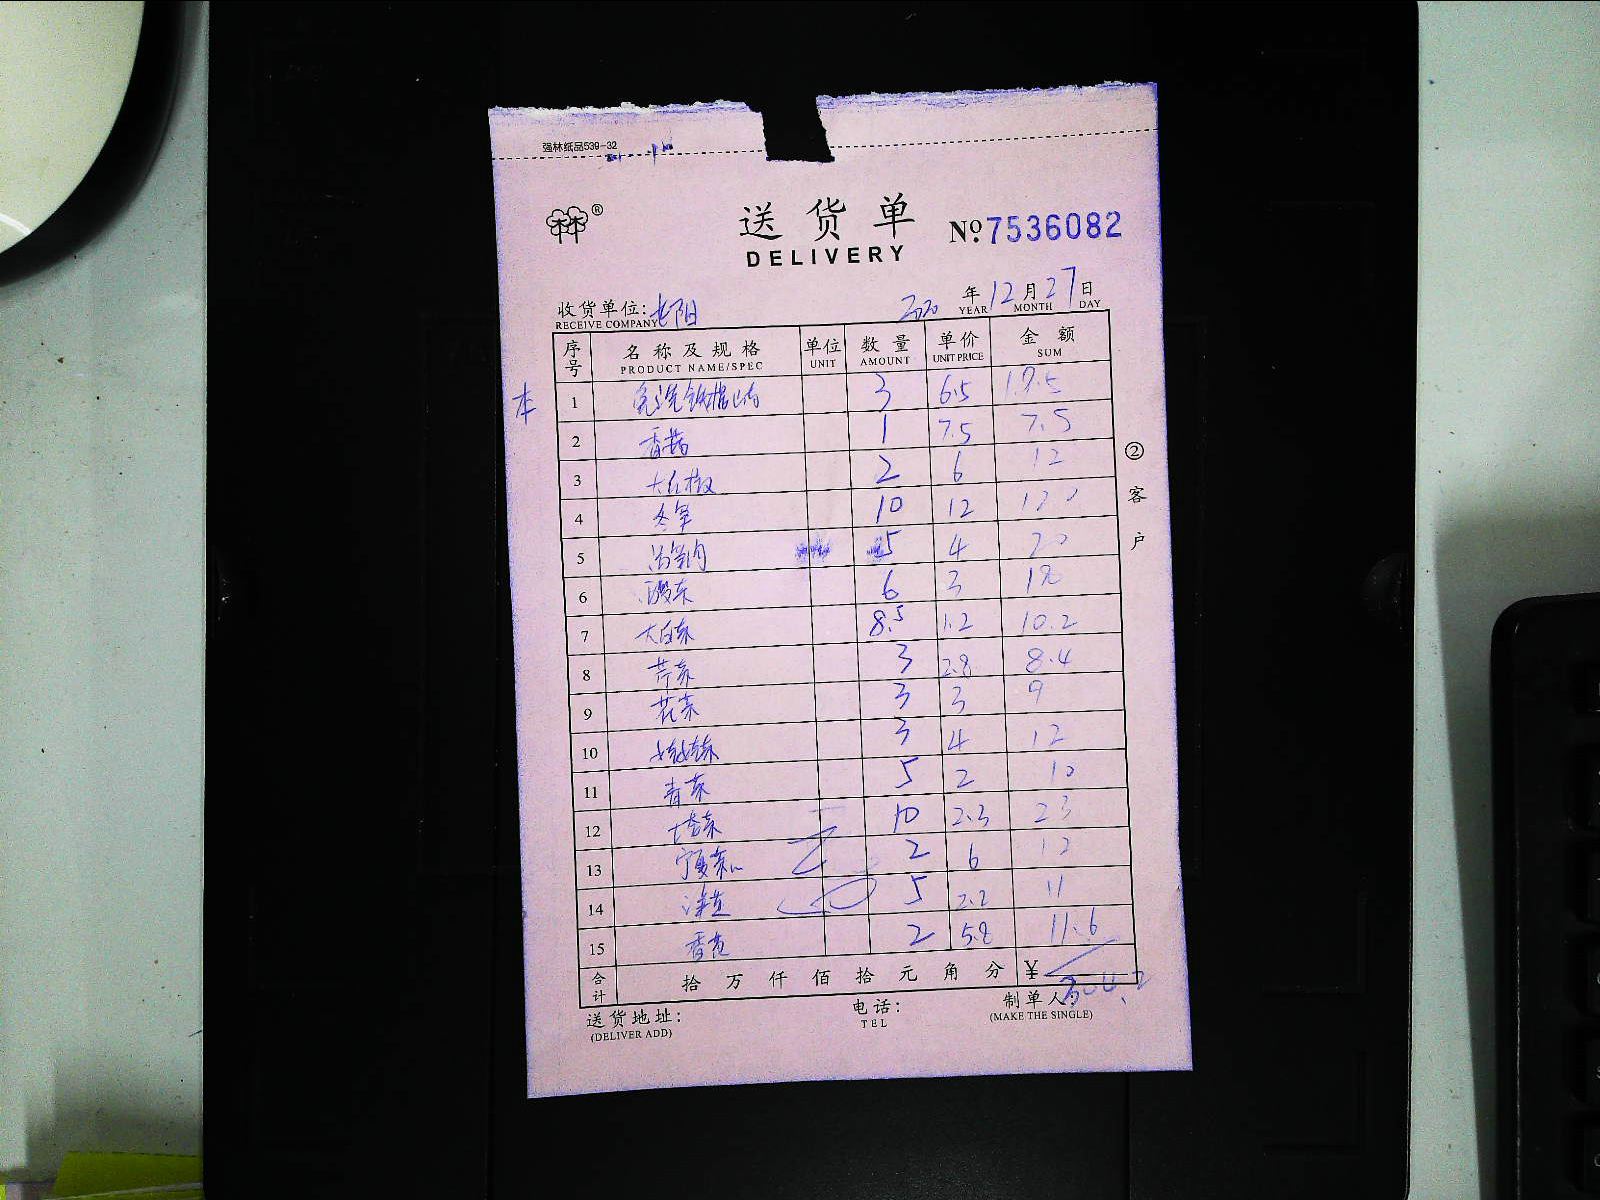 强林纸品539-32
®
送货单 №7536082
DELIVERY
收货单位: 2020 年 12 月 27 日
RECEIVE COMPANY YEAR MONTH DAY
序号 名称及规格 单位 数量 单价 金额
PRODUCT NAME/SPEC UNIT AMOUNT UNIT PRICE SUM
本 1 3 6.5 19.5
2 香菇 1 7.5 7.5
3 大红椒 2 6 12
4 冬笋 10 12 120
5 5 4 20
6 酸菜 6 3 18
7 大白菜 8.5 1.2 10.2
8 芹菜 3 2.8 8.4
9 花菜 3 3 9
10 娃娃菜 3 4 12
11 青菜 5 2 10
12 10 2.3 23
13 2 6 12
14 5 2.2 11
15 2 5.8 11.6
合计 拾 万 仟 佰 拾 元 角 分 ¥ 304.2
送货地址: 电话: 制单人:
(DELIVER ADD) TEL (MAKE THE SINGLE)
②客户